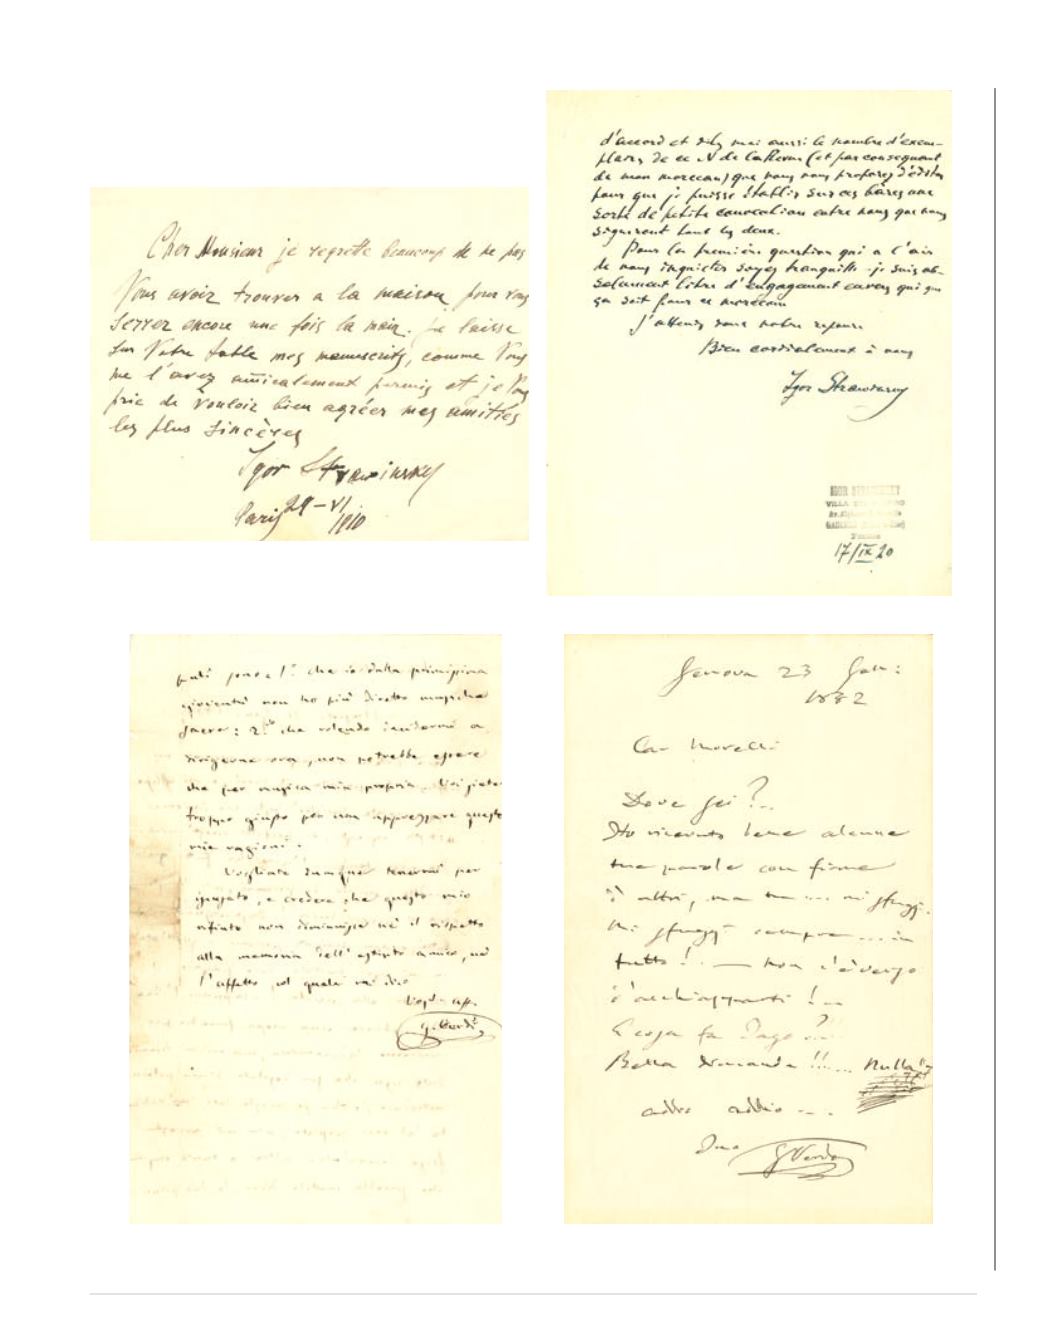 Cher Monsieur je regrette beaucoup de ne pas
Vous avoir trouver a la maison pour vous
serrer encore une fois la main. je laisse
sur Votre table mes manuscrits, comme Vous
me l'avez amicalement permis et je Vous
prie de vouloir bien agréer mes amitiés
les plus sincères
Igor Strawinsky
Paris 29-VI
1910
d'accord et dites moi aussi le nombre d'exem-
plaires de ce N de la Revue (et par consequent
de mon morceau) que vous vous proposez d'éditer
pour que je puisse établir sur ces bases une
sorte de petite convocation entre nous que nous
signeront tous les deux.
Pour la première question qui a l'air
de vous inquieter soyez tranquille - je suis ab-
solument libre d'engagement envers qui que
ça soit pour ce morceau
J'attends donc votre reponse
Bien cordialement à vous
Igor Strawinsky
IGOR STRAWINSKY
VILLA
France
17/IX 20
1º che io dalla primissima
gioventù non ho più diretto musica
sacra: 2do che volendo indurmi a
dirigerne ora, non potrebbe essere
che per musica mia propria. Voi siete
troppo giusto per non apprezzare queste
mie ragioni.
Vogliate dunque tenermi per
iscusato, e credere che questo mio
rifiuto non diminuisce nè il rispetto
alla memoria dell'estinto amico, nè
l'affetto, col quale mi dico
Vostro aff.
G. Verdi
Genova 23 Gen:
1882
Car Morelli
Dove sei?..
Ho ricevuto bene alcune
tue parole con firme
d'altri, ma tu.... mi sfuggi.
Mi sfuggi sempre.... in
tutto! — non c'è verso
d'acchiapparti!...
E cosa fa Jago?...
Bella domanda!!.... Nulla!!
addio addio ....
Tuo GVerdi